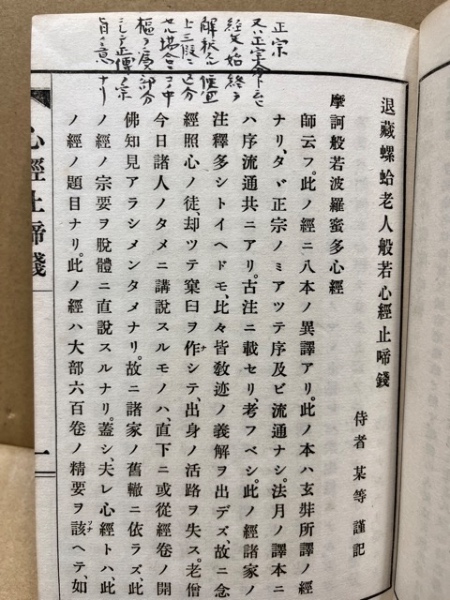 退藏螺蛤老人般若心經止啼錢
侍者某等謹記
摩訶般若波羅蜜多心經
師云フ。此ノ經ニ八本ノ異譯アリ。此ノ本ハ玄弉所譯ノ經
ナリ、タヾ正宗ノミアツテ序及ビ流通ナシ。法月ノ譯本ニ
ハ序流通共ニアリ。古注ニ載セリ、考フベシ。此ノ經諸家ノ
注釋多シトイヘドモ、比々皆敎迹ノ義解ヲ出デズ、故ニ念
經照心ノ徒、却ツテ窠臼ヲ作ナシテ、出身ノ活路ヲ失ス。老僧
今日諸人ノタメニ講說スルモノハ、直下ニ或從經卷ノ開
佛知見アラシメンタメナリ。故ニ諸家ノ舊轍ニ依ラズ、此
ノ經ノ宗要ヲ脫體ニ直說スルナリ。蓋シ、夫レ心經トハ、此
ノ經ノ題目ナリ。此ノ經ハ大部六百卷ノ精要ヲ該ソナヘテ、如
正宗
又ハ正宗分トモ云
經文ノ始終ヲ
解釈ノ便宜
上三段ニ区分
セル場合ニソノ中
樞ヲ爲ス部分
ニシテ正傳ノ宗
旨ノ意ナリ
心經止啼錢
一